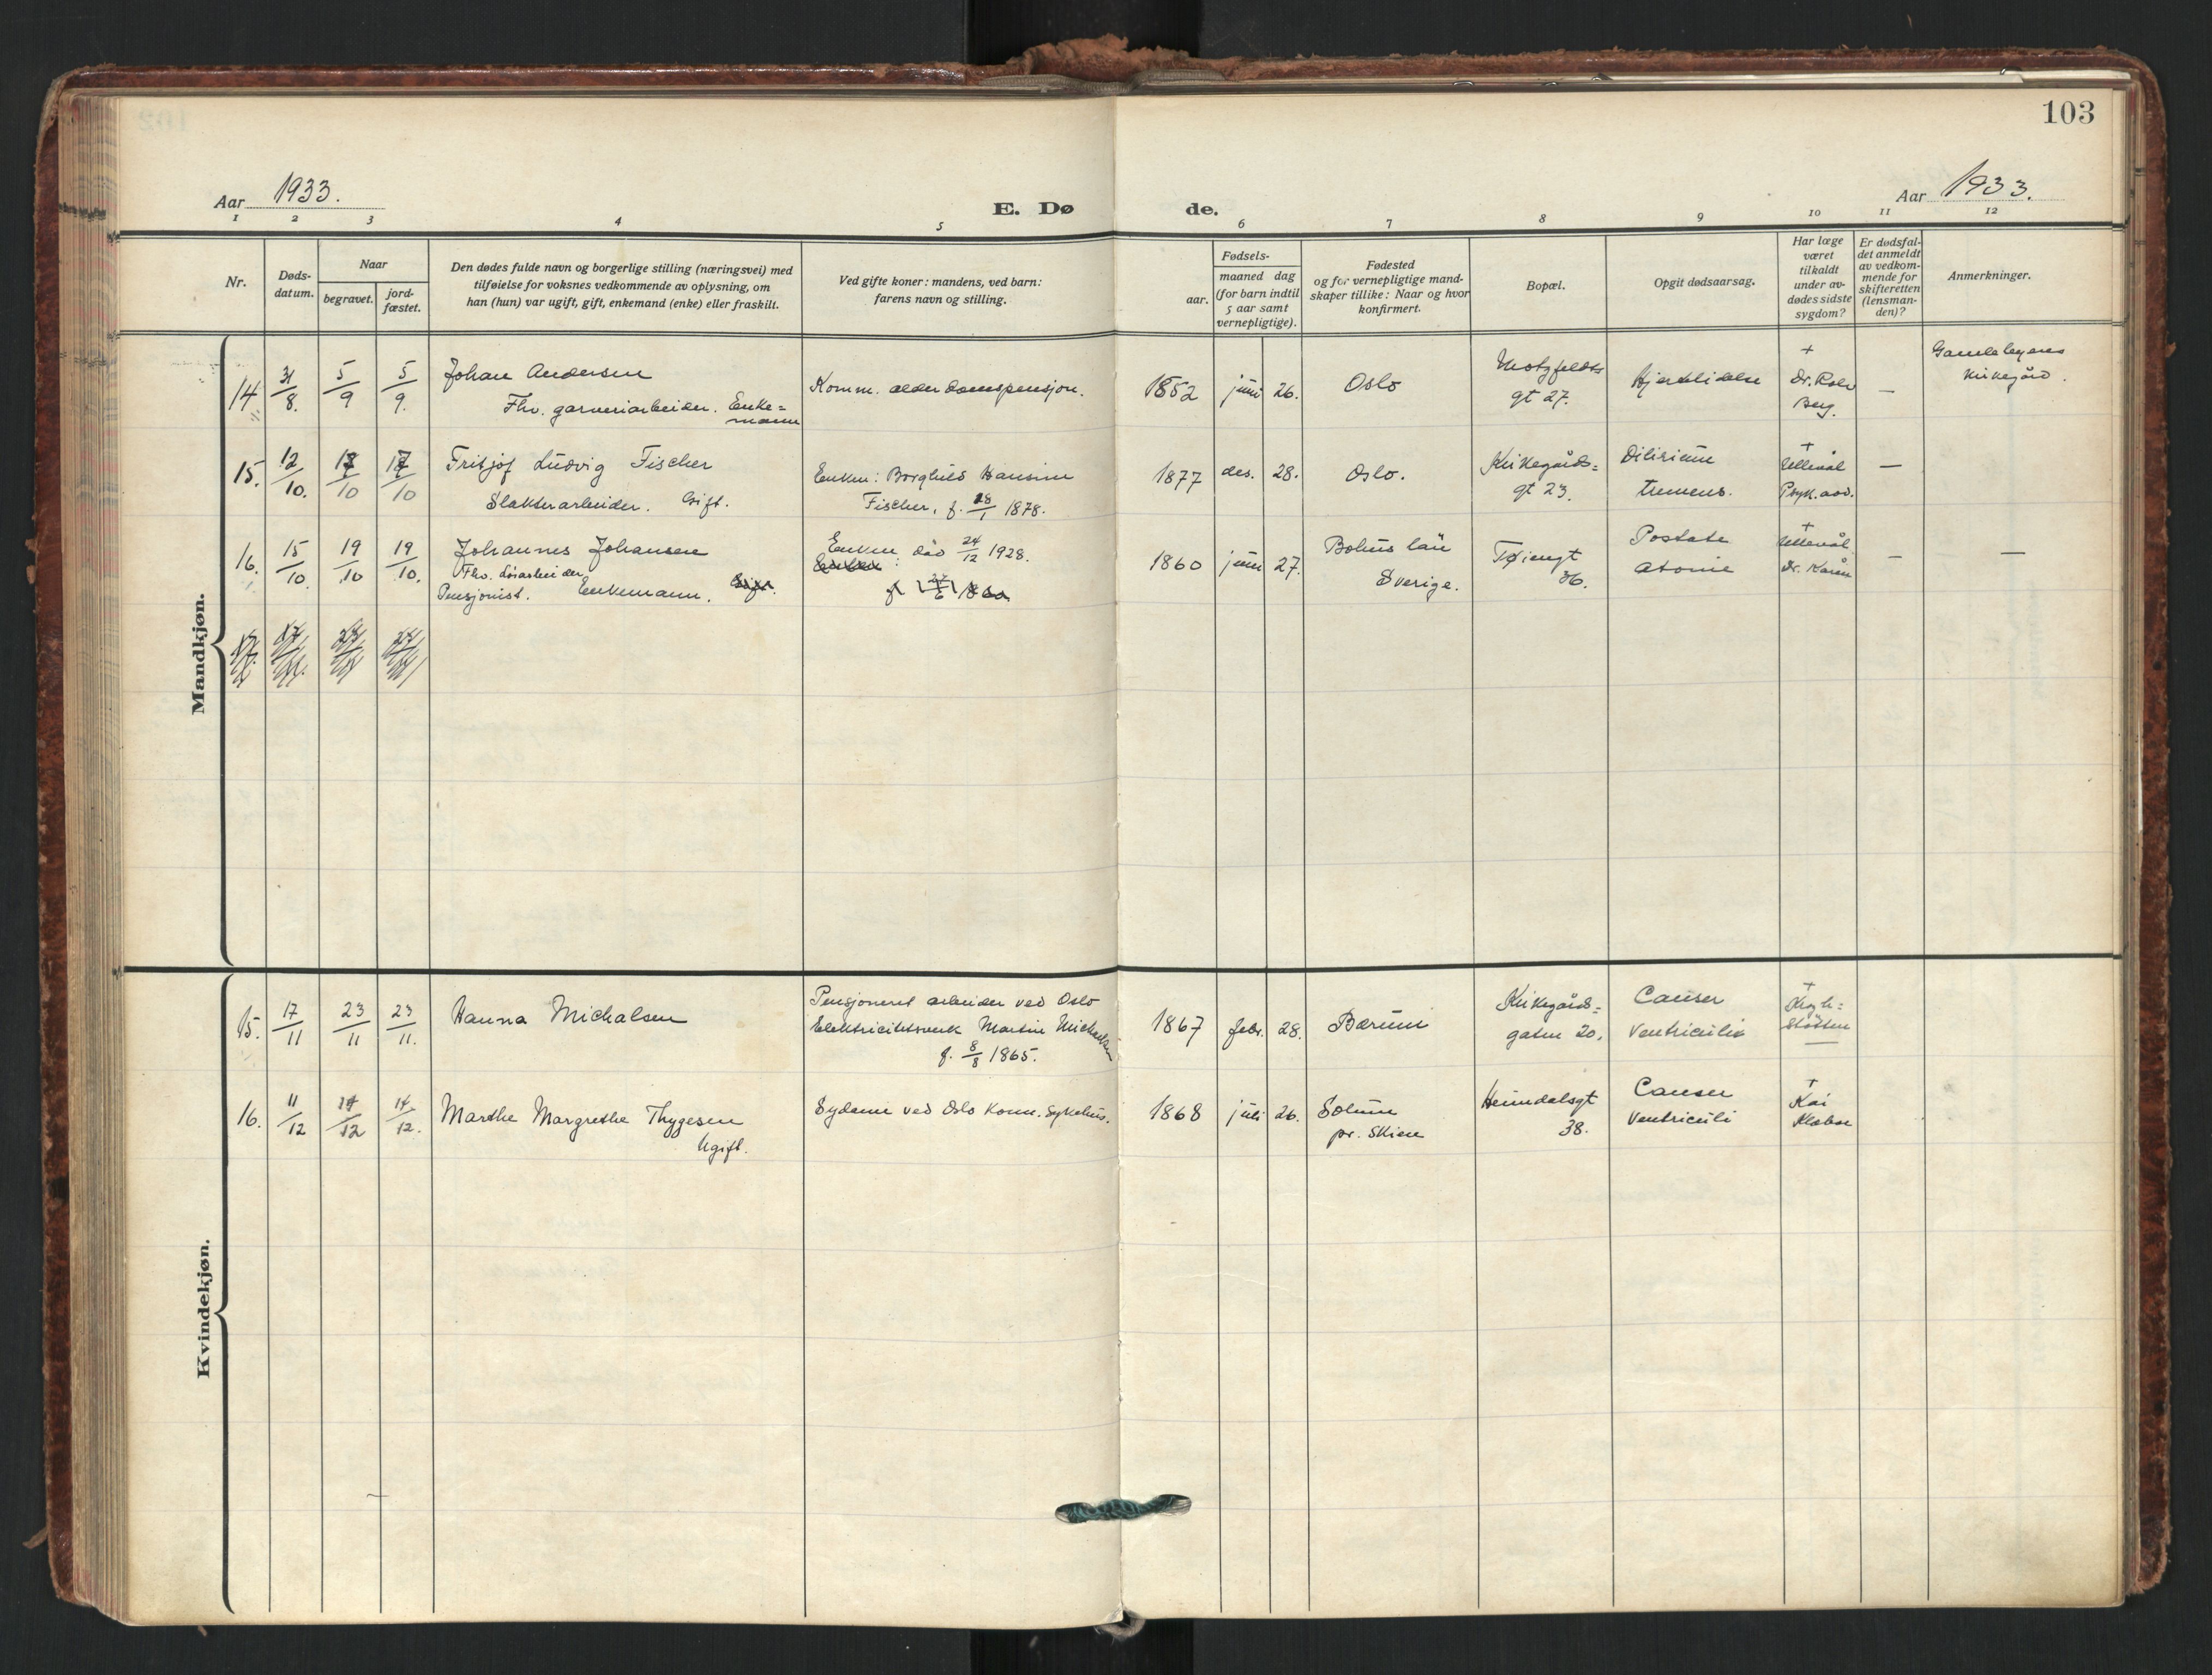 103
Aar 1933. E. Dø de. Aar 1933.
1 2 3 4 5 6 7 8 9 10 11 12
Nr.
Døds-
datum.
Naar
begravet.
jord-
fæstet.
Den dødes fulde navn og borgerlige stilling (næringsvei) med
tilføielse for voksnes vedkommende av oplysning, om
han (hun) var ugift, gift, enkemand (enke) eller fraskilt.
Ved gifte koner: mandens, ved barn:
farens navn og stilling.
Fødsels-
aar.
maaned dag
(for barn indtil
5 aar samt
vernepligtige).
Fødested
og for vernepligtige mand-
skaper tillike: Naar og hvor
konfirmert.
Bopæl.
Opgit dødsaarsag.
Har læge
været
tilkaldt
under av-
dødes sidste
sygdom?
Er dødsfal-
det anmeldt
av vedkom-
mende for
skifteretten
(lensman-
den)?
Anmerkninger.
Mandkjøn.
14 31/8. 5/9 5/9.
Johan Andersen
Fhv. garveriarbeider. Enke=
mann
Komm. alderdomspensjon.
1852 juni 26. Oslo
gt 27.
Hjertelidelse
+
Dr. Rolv
Berg.
—
Gamlebyens
Kirkegård.
15. 12/10. 17/10 17/10
Fritjof Ludvig Fischer
Slakterarbeider. Gift.
Enken: Borghild Hansine
Fischer, f. 28/1 1878.
1877 des. 28. Oslo.
Kirkegårds=
gt 23.
Dilirium
tremens.
+
Ullevål
Psyk. avd.
—
16. 15/10. 19/10 19/10.
Johannes Johansen
Fhv. Løsarbeider
Pensjonist. Enkemann. Gift.
Enken død 24/12 1928.
1860 juni 27.
Bohus län
Sverige.
Tøiengt
36.
Postate
atonie
+
Ullevål
Dr. Karen
— —
17.
Kvindekjøn.
15. 17/11 23/11 23/11.
Hanna Michalsen
Pensjonert arbeider ved Oslo
Elektricitetsverk Martin Michalsen
f. 8/8 1865.
1867 febr. 28. Bærum
Kirkegårds=
gaten 20.
Canser
Ventriculi
+
Kryk=
støtten
16. 11/12 14/12 14/12.
Marthe Margrethe Thygesen
Ugift.
Sydame ved Oslo Komm. Sykehus.
1868 juli 26.
Solum
pr. Skien
Heimdalsgt
38.
Canser
Ventriculi
+
Kai